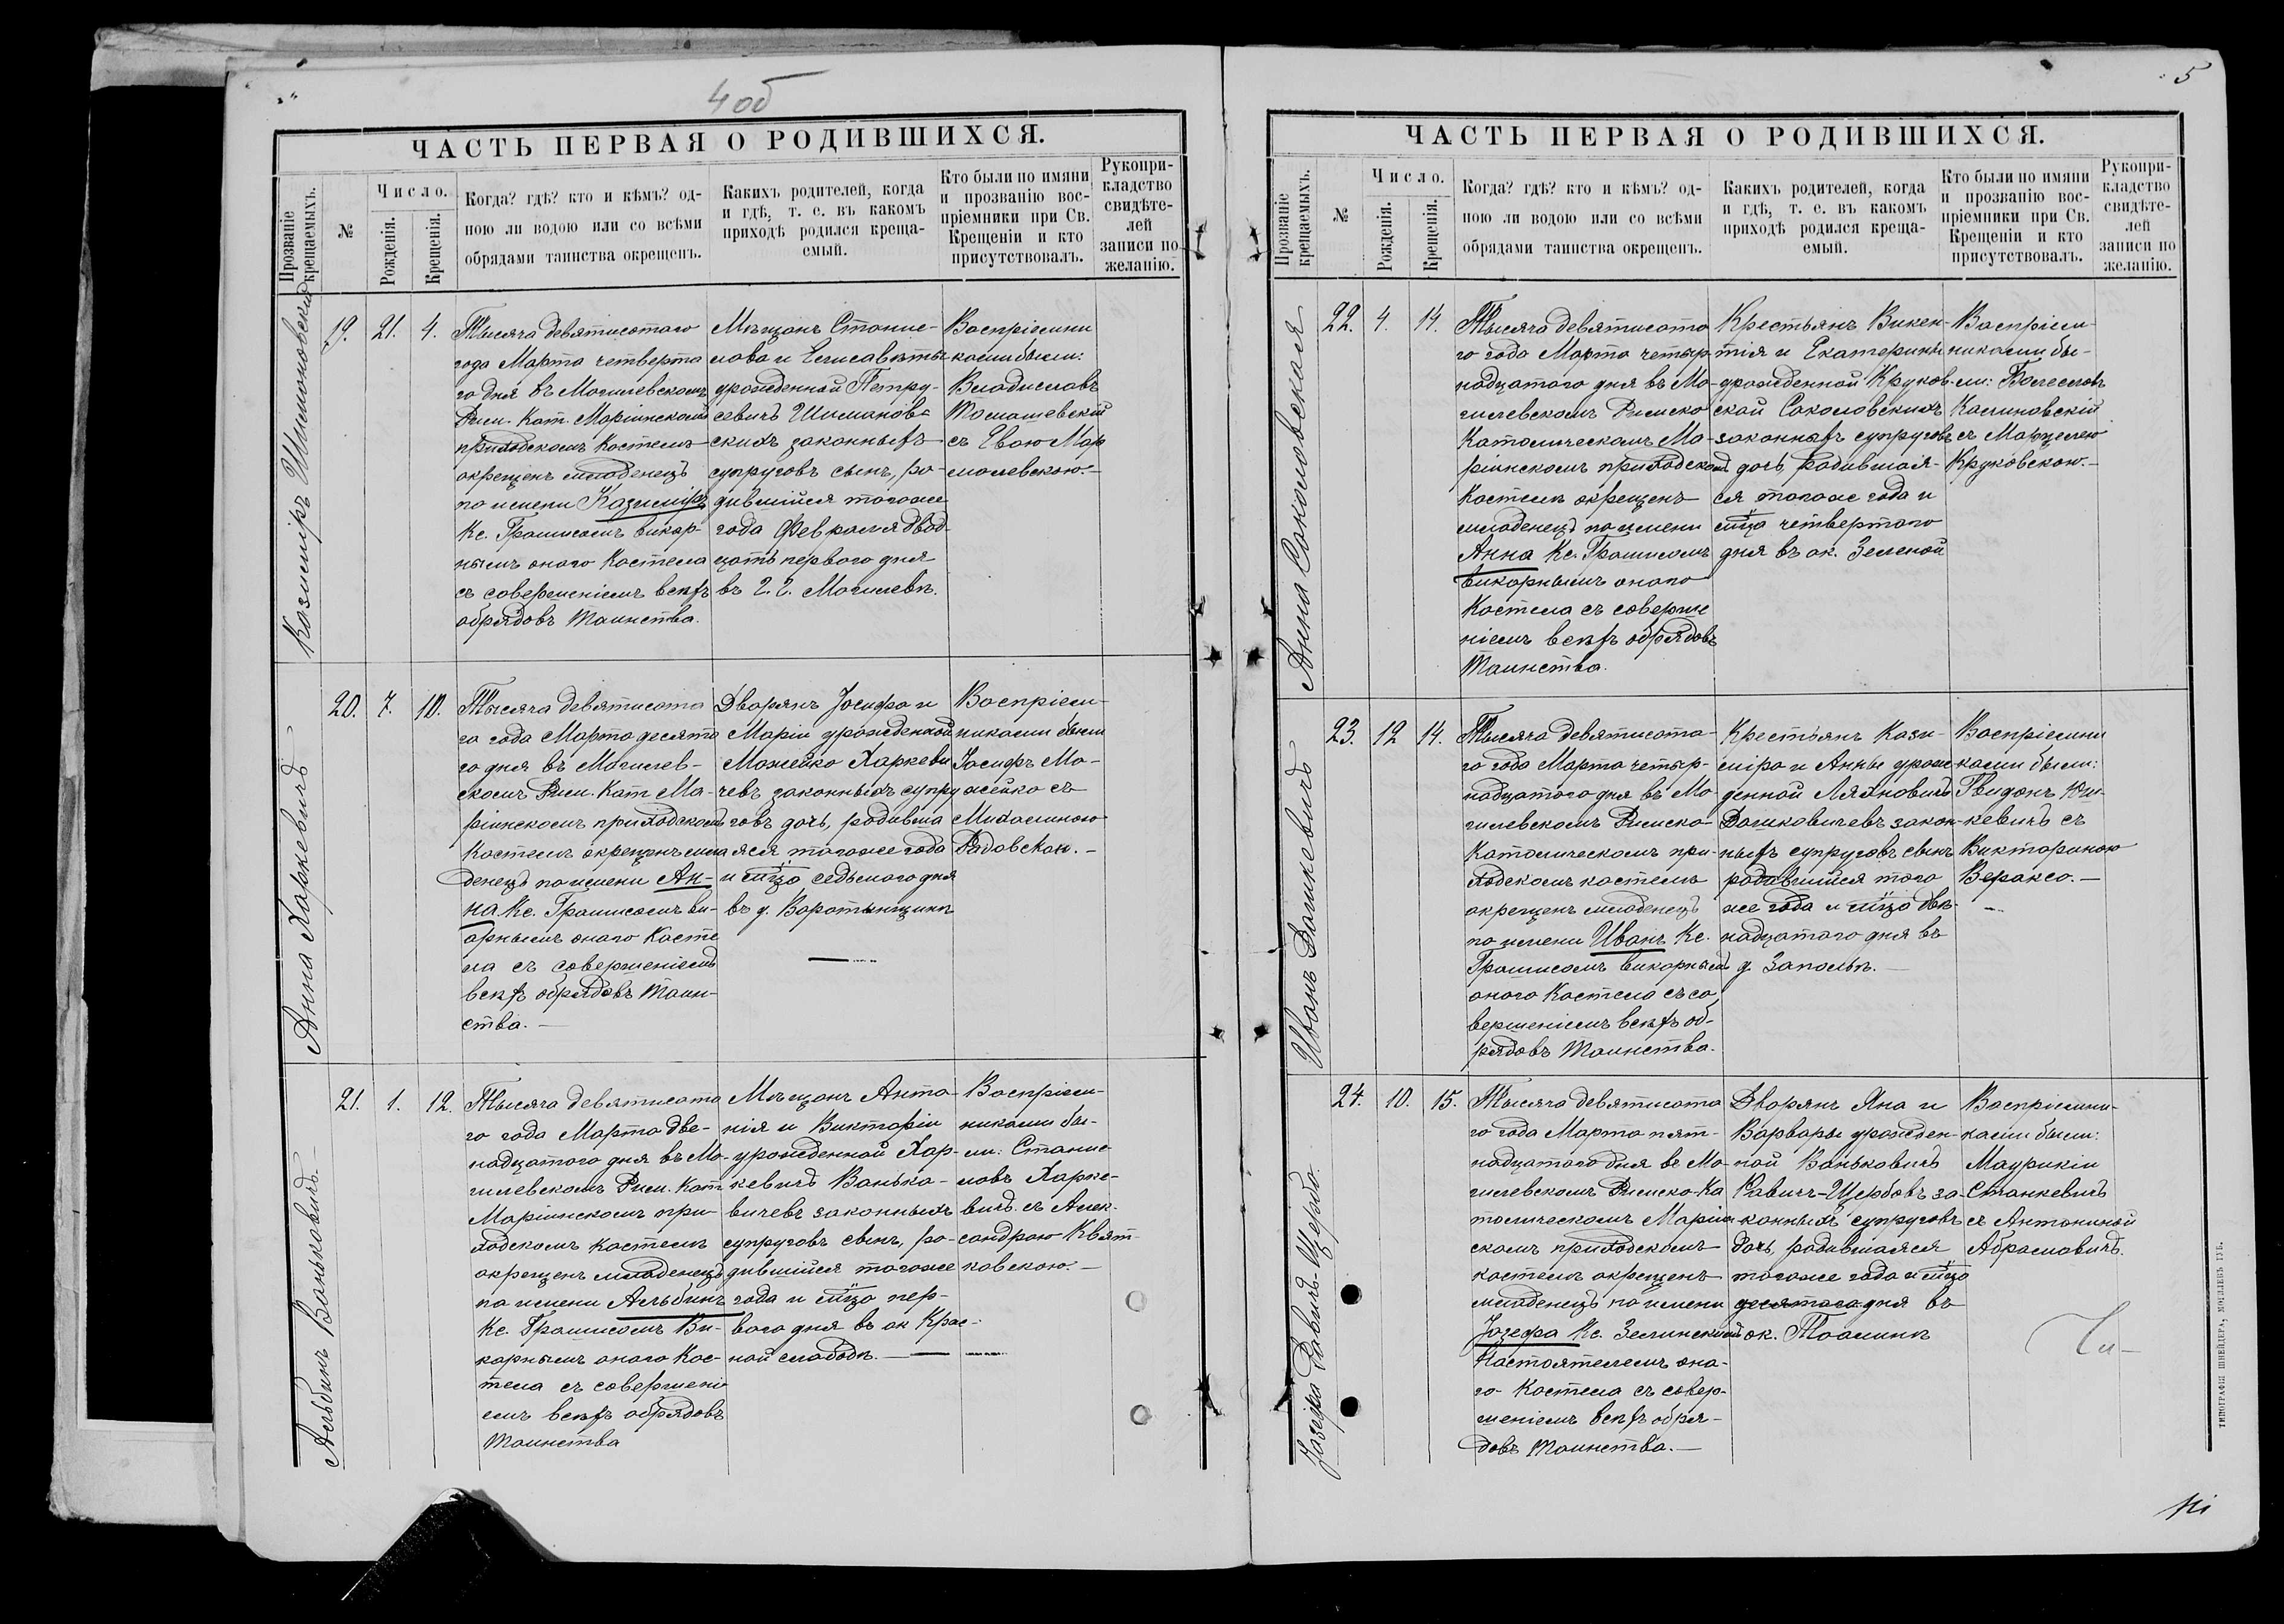 4 об
ЧАСТЬ ПЕРВАЯ О РОДИВШИХСЯ.
Прозваніе крещаемыхъ.
№
Число.
Рожденія.
Крещенія.
Когда? гдѣ? кто и кѣмъ? од-
ною ли водою или со всѣми
обрядами таинства окрещенъ.
Какихъ родителей, когда
и гдѣ, т. е. въ какомъ
приходѣ родился креща-
емый.
Кто были по имяни
и прозванію вос-
пріемники при Св.
Крещеніи и кто
присутствовалъ.
Рукопри-
кладство
свидѣте-
лей
записи по
желанію.
Казиміръ Шимановскій
19. 21. 4.
Тысяча девятисотаго
года Марта четверта
го дня въ Могилевскомъ
Рим. Кат. Маріинскомъ
приходскомъ костелѣ
окрещенъ младенецъ
по имени Казиміръ
Кс. Грамисомъ викар-
нымъ онаго Костела
съ совершеніемъ всѣхъ
обрядовъ Таинства.
Мѣщанъ Станис-
лава и Елисаветы
урожденной Петру-
севичъ Шиманов-
скихъ законныхъ
супруговъ сынъ, ро-
дившійся тогоже
года Февраля двад
цать перваго дня
въ г. г. Могилевѣ.
Воспріемни
ками были:
Владиславъ
Томашевскій
съ Евою Мар
молевскою.
Анна Харкевичъ
20. 7. 10.
Тысяча девятисота
го года Марта десято
го дня въ Могилев-
скомъ Рим. Кат Ма-
ріинскомъ приходскомъ
Костелѣ окрещенъ мла
денецъ по имени Ан-
на Кс. Грамисомъ ви-
арнымъ онаго Косте
ла съ совершеніемъ
всѣхъ обрядовъ Таин-
ства.
Дворянъ Іосифа и
Маріи урожденной
Можейко Харкеви
чевъ законныхъ супру
говъ дочь, родивша
яся тогоже года
и м-ца седьмаго дня
въ д. Воротынщинѣ
Воспріем-
никами были
Іосифъ Мо-
жейко съ
Михалиною
Радовской.
Альбинъ Ваньковичъ.
21. 1. 12.
Тысяча девятисота
го года Марта две-
надцатаго дня въ Мо-
гилевскомъ Рим. Кат
Маріинскомъ при-
ходскомъ костелѣ
окрещенъ младенецъ
по имени Альбинъ
Кс. Грамисомъ Ви-
карнымъ онаго Кос-
тела съ совершені
емъ всѣхъ обрядовъ
Таинства
Мѣщанъ Анто-
нія и Викторіи
урожденной Хар-
кевичъ Ванько-
вичевъ законныхъ
супруговъ сынъ, ро-
дившійся тогоже
года и м-ца пер-
ваго дня въ ок Крас-
ной слободѣ.
Воспріем-
никами бы-
ли: Станис
лавъ Харке-
вичъ съ Алек-
сандрою Квят-
ковскою.
5
ЧАСТЬ ПЕРВАЯ О РОДИВШИХСЯ.
Прозваніе крещаемыхъ.
№
Число.
Рожденія.
Крещенія.
Когда? гдѣ? кто и кѣмъ? од-
ною ли водою или со всѣми
обрядами таинства окрещенъ.
Какихъ родителей, когда
и гдѣ, т. е. въ какомъ
приходѣ родился креща-
емый.
Кто были по имяни
и прозванію вос-
пріемники при Св.
Крещеніи и кто
присутствовалъ.
Рукопри-
кладство
свидѣте-
лей
записи по
желанію.
Анна Соколовская
22. 4. 14.
Тысяча девятисота
го года Марта четыр
надцатаго дня въ Мо-
гилевскомъ Римско
Католическомъ Ма-
ріинскомъ приходскомъ
Костелѣ окрещенъ
младенецъ по имени
Анна Кс. Грамисомъ
викарнымъ онаго
Костела съ соверше
ніемъ всѣхъ обрядовъ
Таинства.
Крестьянъ Викен-
тія и Екатерины
урожденной Круков-
ской Соколовскихъ
законныхъ супруговъ
дочь, родившая-
ся тогоже года и
м-ца четвертаго
дня въ ок. Зеленой
Воспріем-
никами бы-
ли: Болеславъ
Калиновскій
съ Марцелею
Круковскою.
Иванъ Дашкевичъ
23. 12 14.
Тысяча девятисота-
го года Марта четыр-
надцатаго дня въ Мо-
гилевскомъ Римско-
Католическомъ при-
ходскомъ костелѣ
окрещенъ младенецъ
по имени Иванъ Кс.
Грамисомъ викарнымъ
онаго Костела съ со
вершеніемъ всѣхъ об-
рядовъ Таинства.
Крестьянъ Кази-
міра и Анны урож-
денной Ляхновичъ
Дашкевичевъ закон-
ныхъ супруговъ сынъ
родившійся того
же года и м-ца двѣ-
надцатаго дня въ
д. Запольѣ.
Воспріемни
ками были:
Гвидонъ Юш-
кевичъ съ
Викториною
Вераксо.
Іозефа Равичъ-Щербо.
24. 10. 15.
Тысяча девятисота
го года Марта пят-
надцатаго дня въ Мо-
гилевскомъ Римско-Ка
толическомъ Маріин
скомъ приходскомъ
костелѣ окрещенъ
младенецъ по имени
Іозефа Кс. Зелинскимъ
Настоятелемъ она-
го Костела съ совер-
шеніемъ всѣхъ обря-
довъ Таинства.
Дворянъ Яна и
Варвары урожден-
ной Ваньковичъ
Равичъ-Щербовъ за-
конныхъ супруговъ
дочь, родившаяся
тогоже года и м-ца
десятаго дня въ
ок. Тоалинѣ
Воспріемни-
ками были:
Маурикіи
Станкевичъ
съ Антониной
Абрамовичъ.
ТИПОГРАФІЯ ШНЕЙДЕРА, МОГИЛЕВЪ ГУБ.